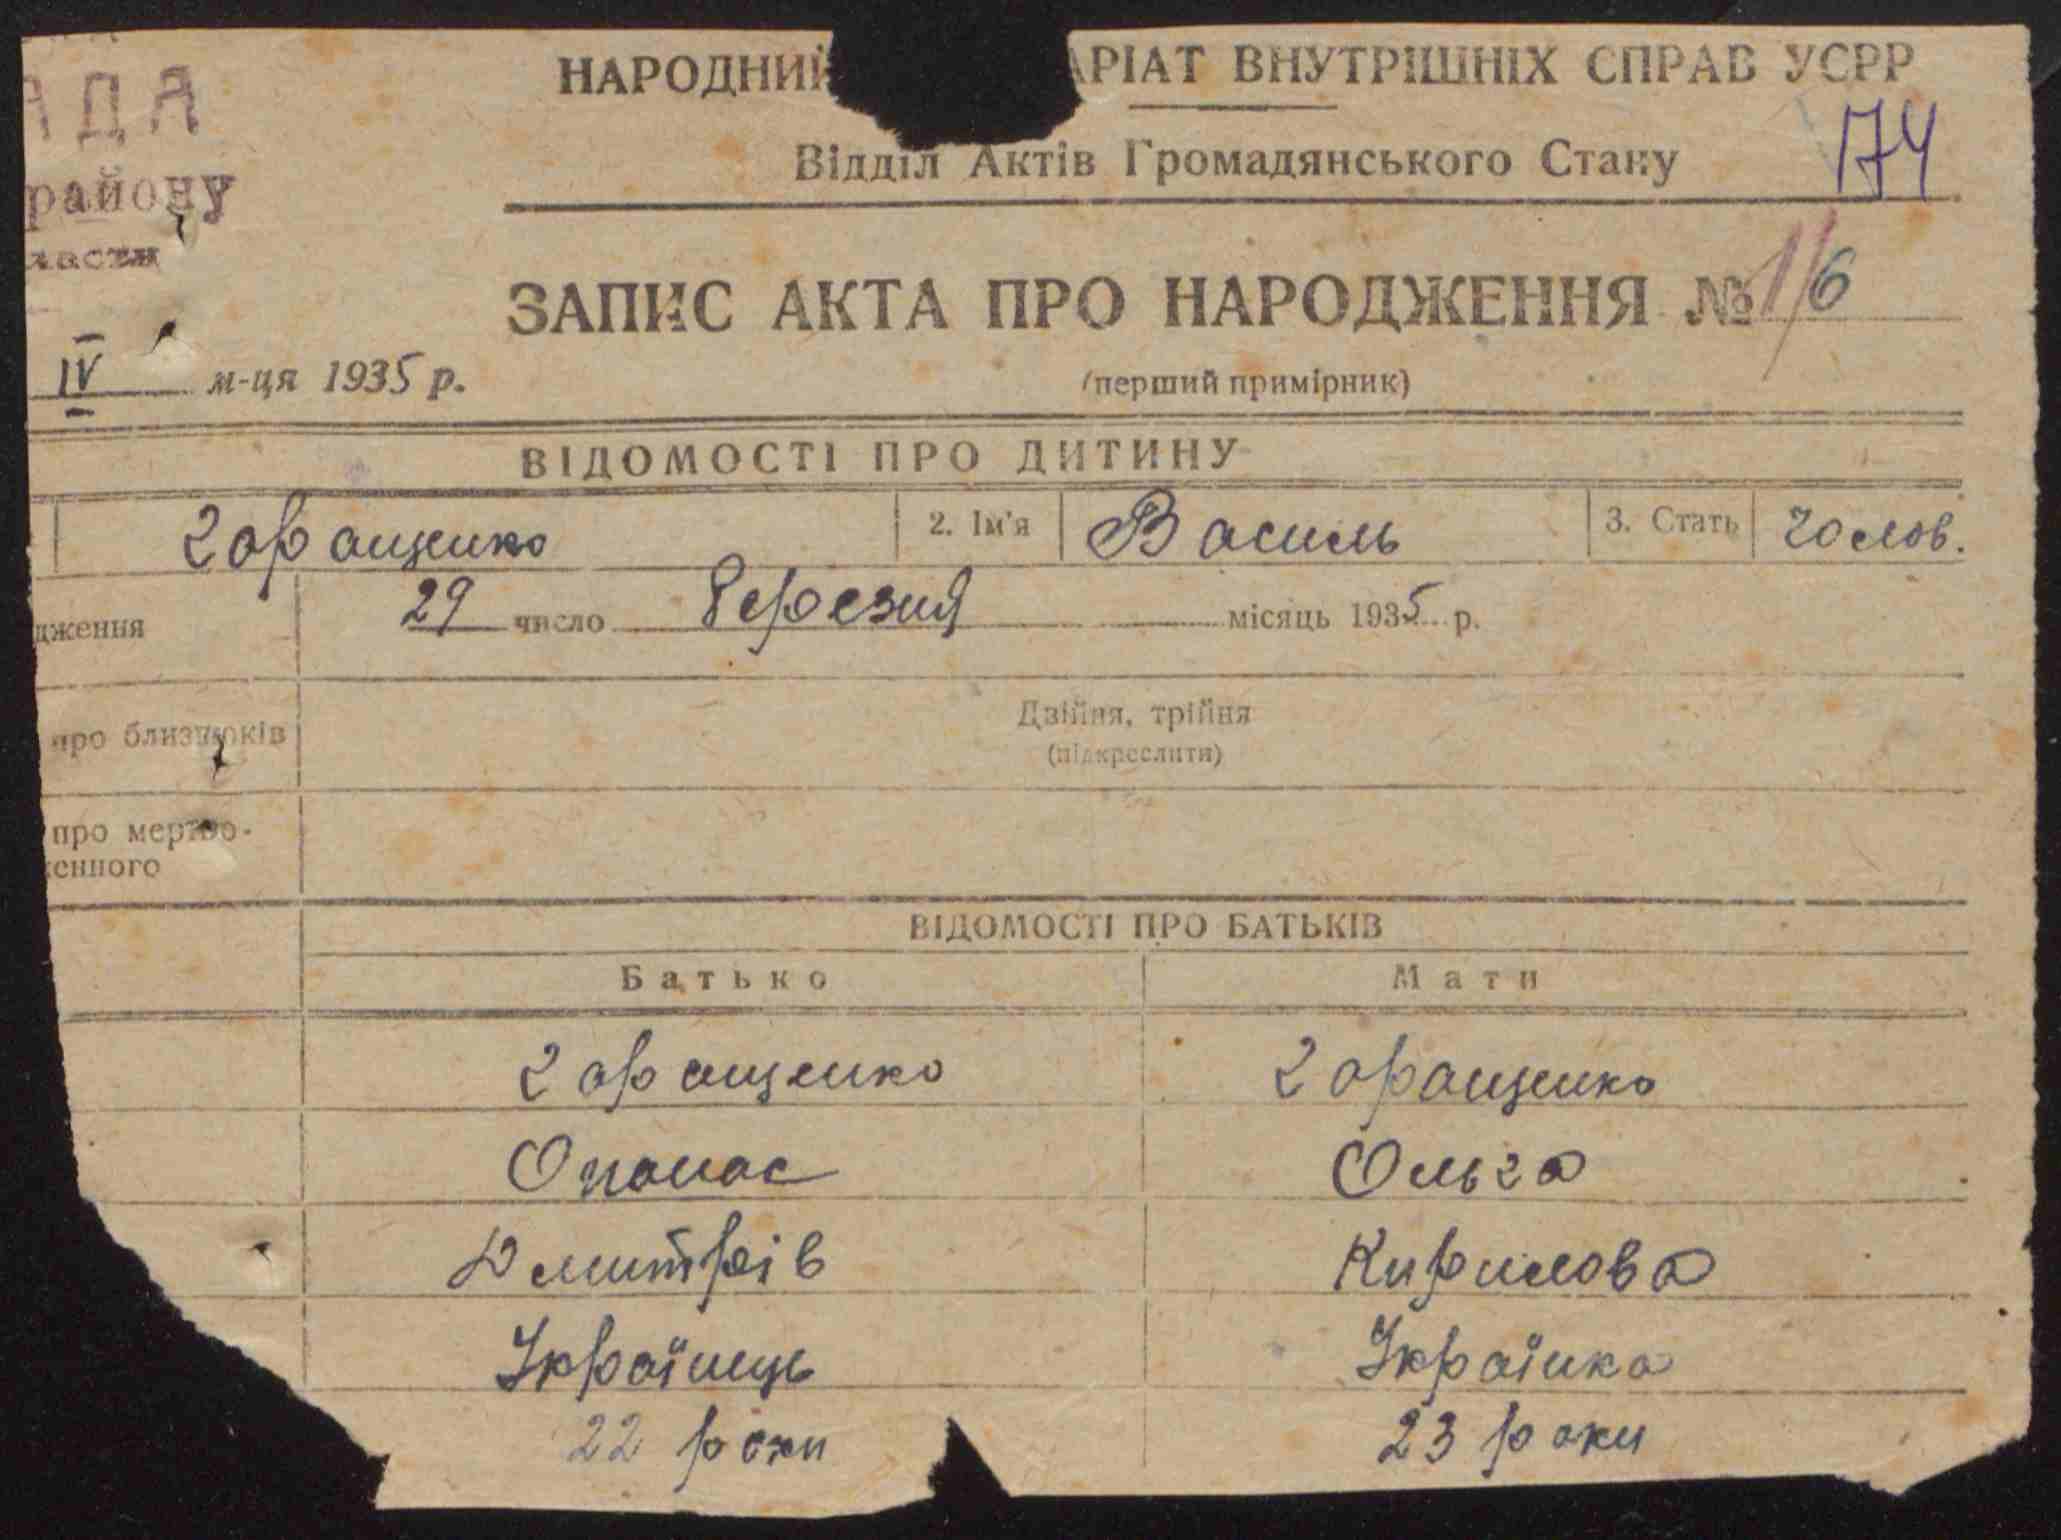 НАРОДНИЙ АРІАТ ВНУТРІШНІХ СПРАВ УСРР
АДА
174
Відділ Актів Громадянського Стану
району
ласти
ЗАПИС АКТА ПРО НАРОДЖЕННЯ № 1/6
IV м-ця 1935 р.
(перший примірник)
ВІДОМОСТІ ПРО ДИТИНУ
Горащенко 2. Ім'я Василь 3. Стать чолов.
дження 29 число березня місяць 1935 р.
про близнюків Двійня, трійня
(підкреслити)
про мертво-
женного
ВІДОМОСТІ ПРО БАТЬКІВ
Батько Мати
Горащенко Горащенко
Опанас Ольга
Дмитрів Кирилова
Українець Українка
22 роки 23 роки